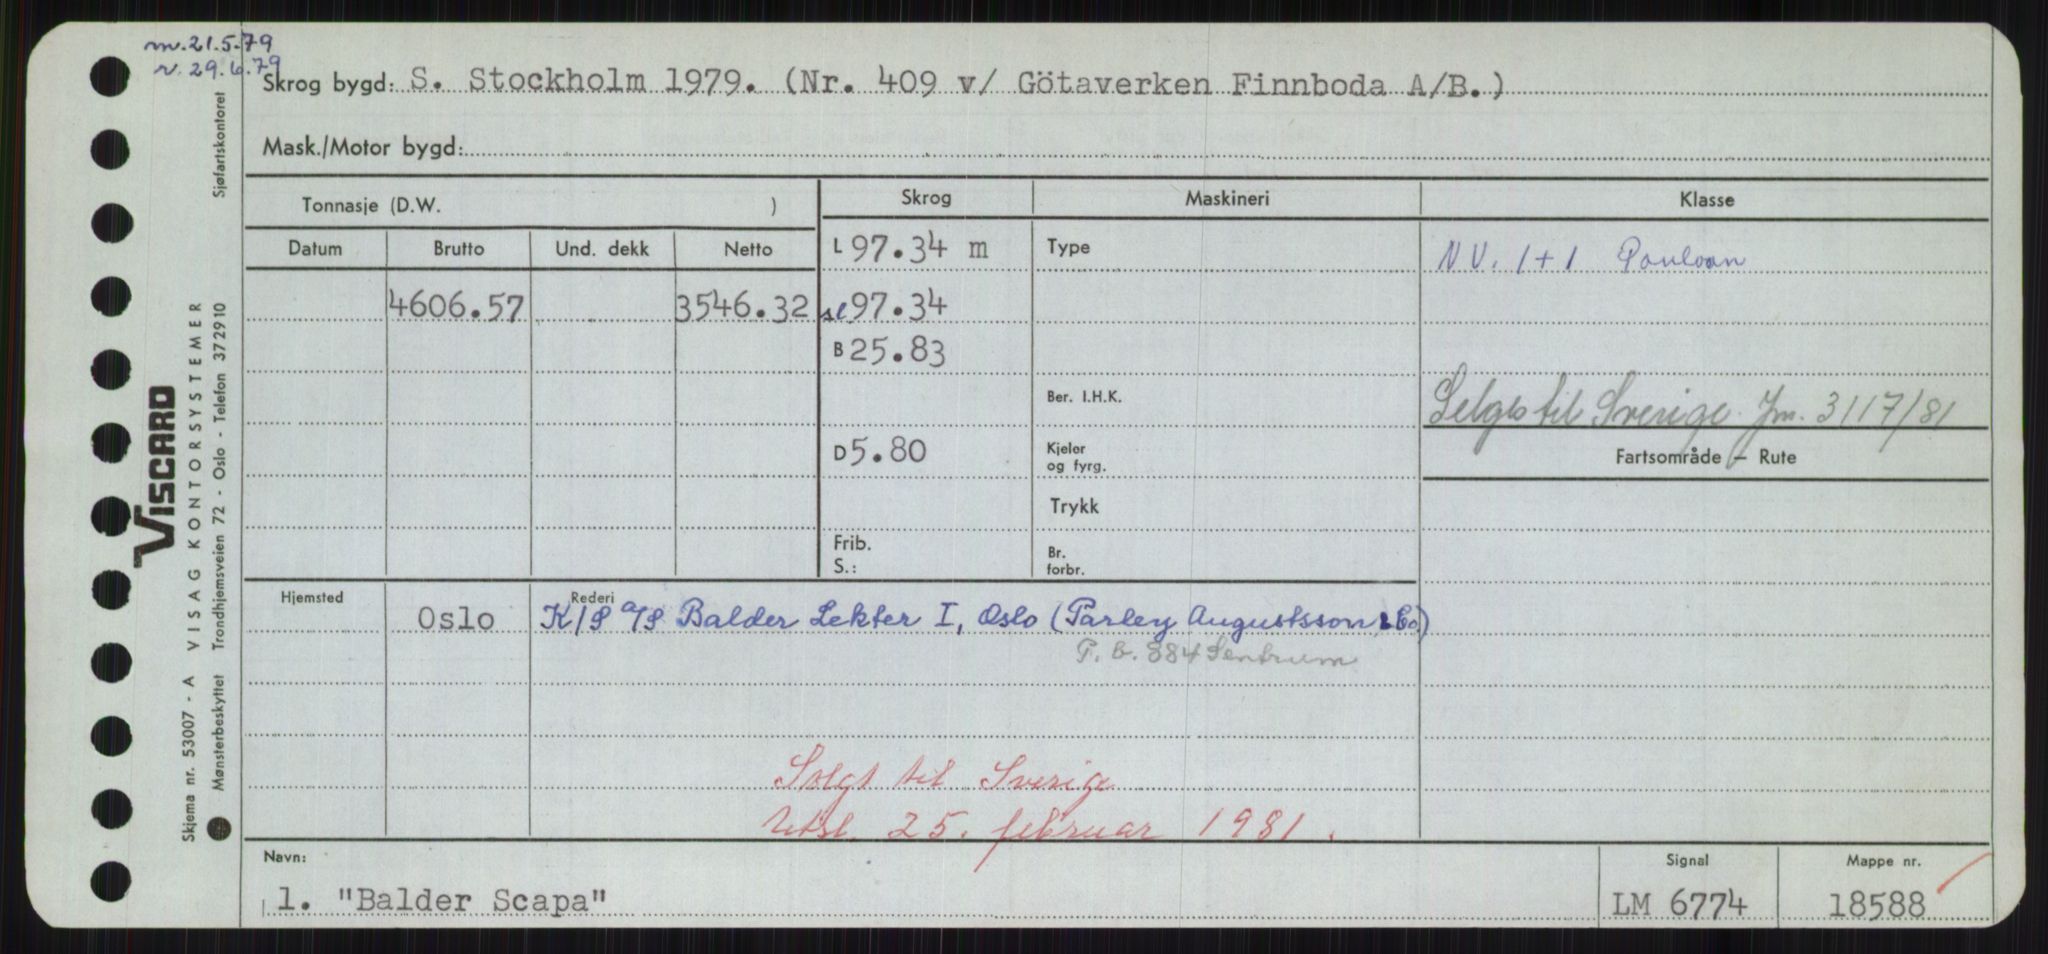 m. 21.5.79
r. 29.6.79
Skrog bygd: S. Stockholm 1979. (Nr. 409 v/ Götaverken Finnboda A/B.)
Mask./Motor bygd:
Tonnasje (D.W. )
Skrog Maskineri Klasse
Datum Brutto Und. dekk Netto
L 97.34 m Type NV. 1+1
4606.57 3546.32 sl 97.34
B 25.83
Ber. I.H.K. Selges til Sverige. Jm. 3117/81
D 5.80 Kjeler
og fyrg.
Fartsområde – Rute
Trykk
Frib.
S.:
Br.
forbr.
Hjemsted Rederi
Oslo K/S A/S Balder Lekter I, Oslo (Parley Augustsson & Co.)
P. b. 884 Sentrum
Solgt til Sverige
Utsl. 25. februar 1981.
Navn: Signal Mappe nr.
1. "Balder Scapa" LM 6774 18588
VISCARD
Skjema nr. 53007 - A VISAG KONTORSYSTEMER
Mønsterbeskyttet Trondhjemsveien 72 - Oslo - Telefon 372910 Sjøfartskontoret